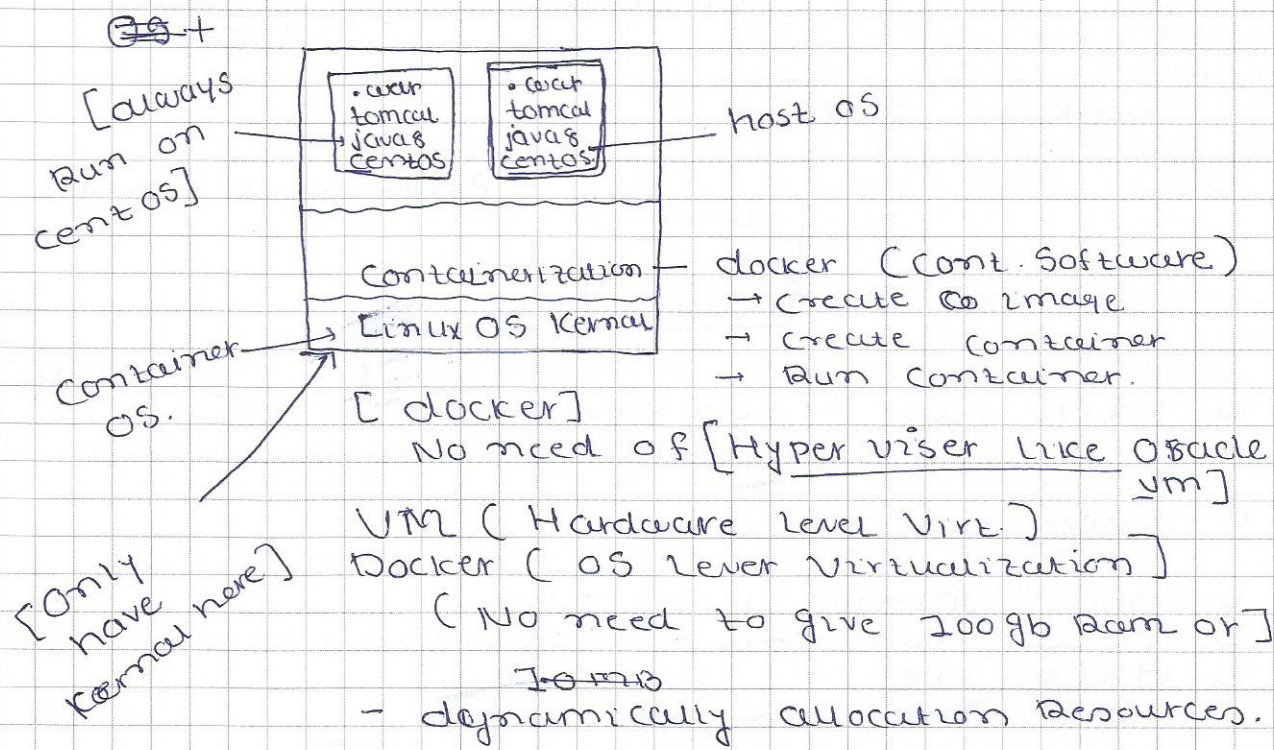 [always
Run on
cent OS]
.war
tomcat
java8
centos
.war
tomcat
java8
centos
host OS
containerization
docker (cont. Software)
→ create image
→ create container
→ Run container.
Linux OS Kernal
Container
OS.
[docker]
No need of [Hyper viser like Oracle
vm]
VM (Hardware Level Virt.)
Docker (OS Level Virtualization]
(No need to give 100gb Ram or]
[only
have
kernal here]
- dynamically allocation Resources.